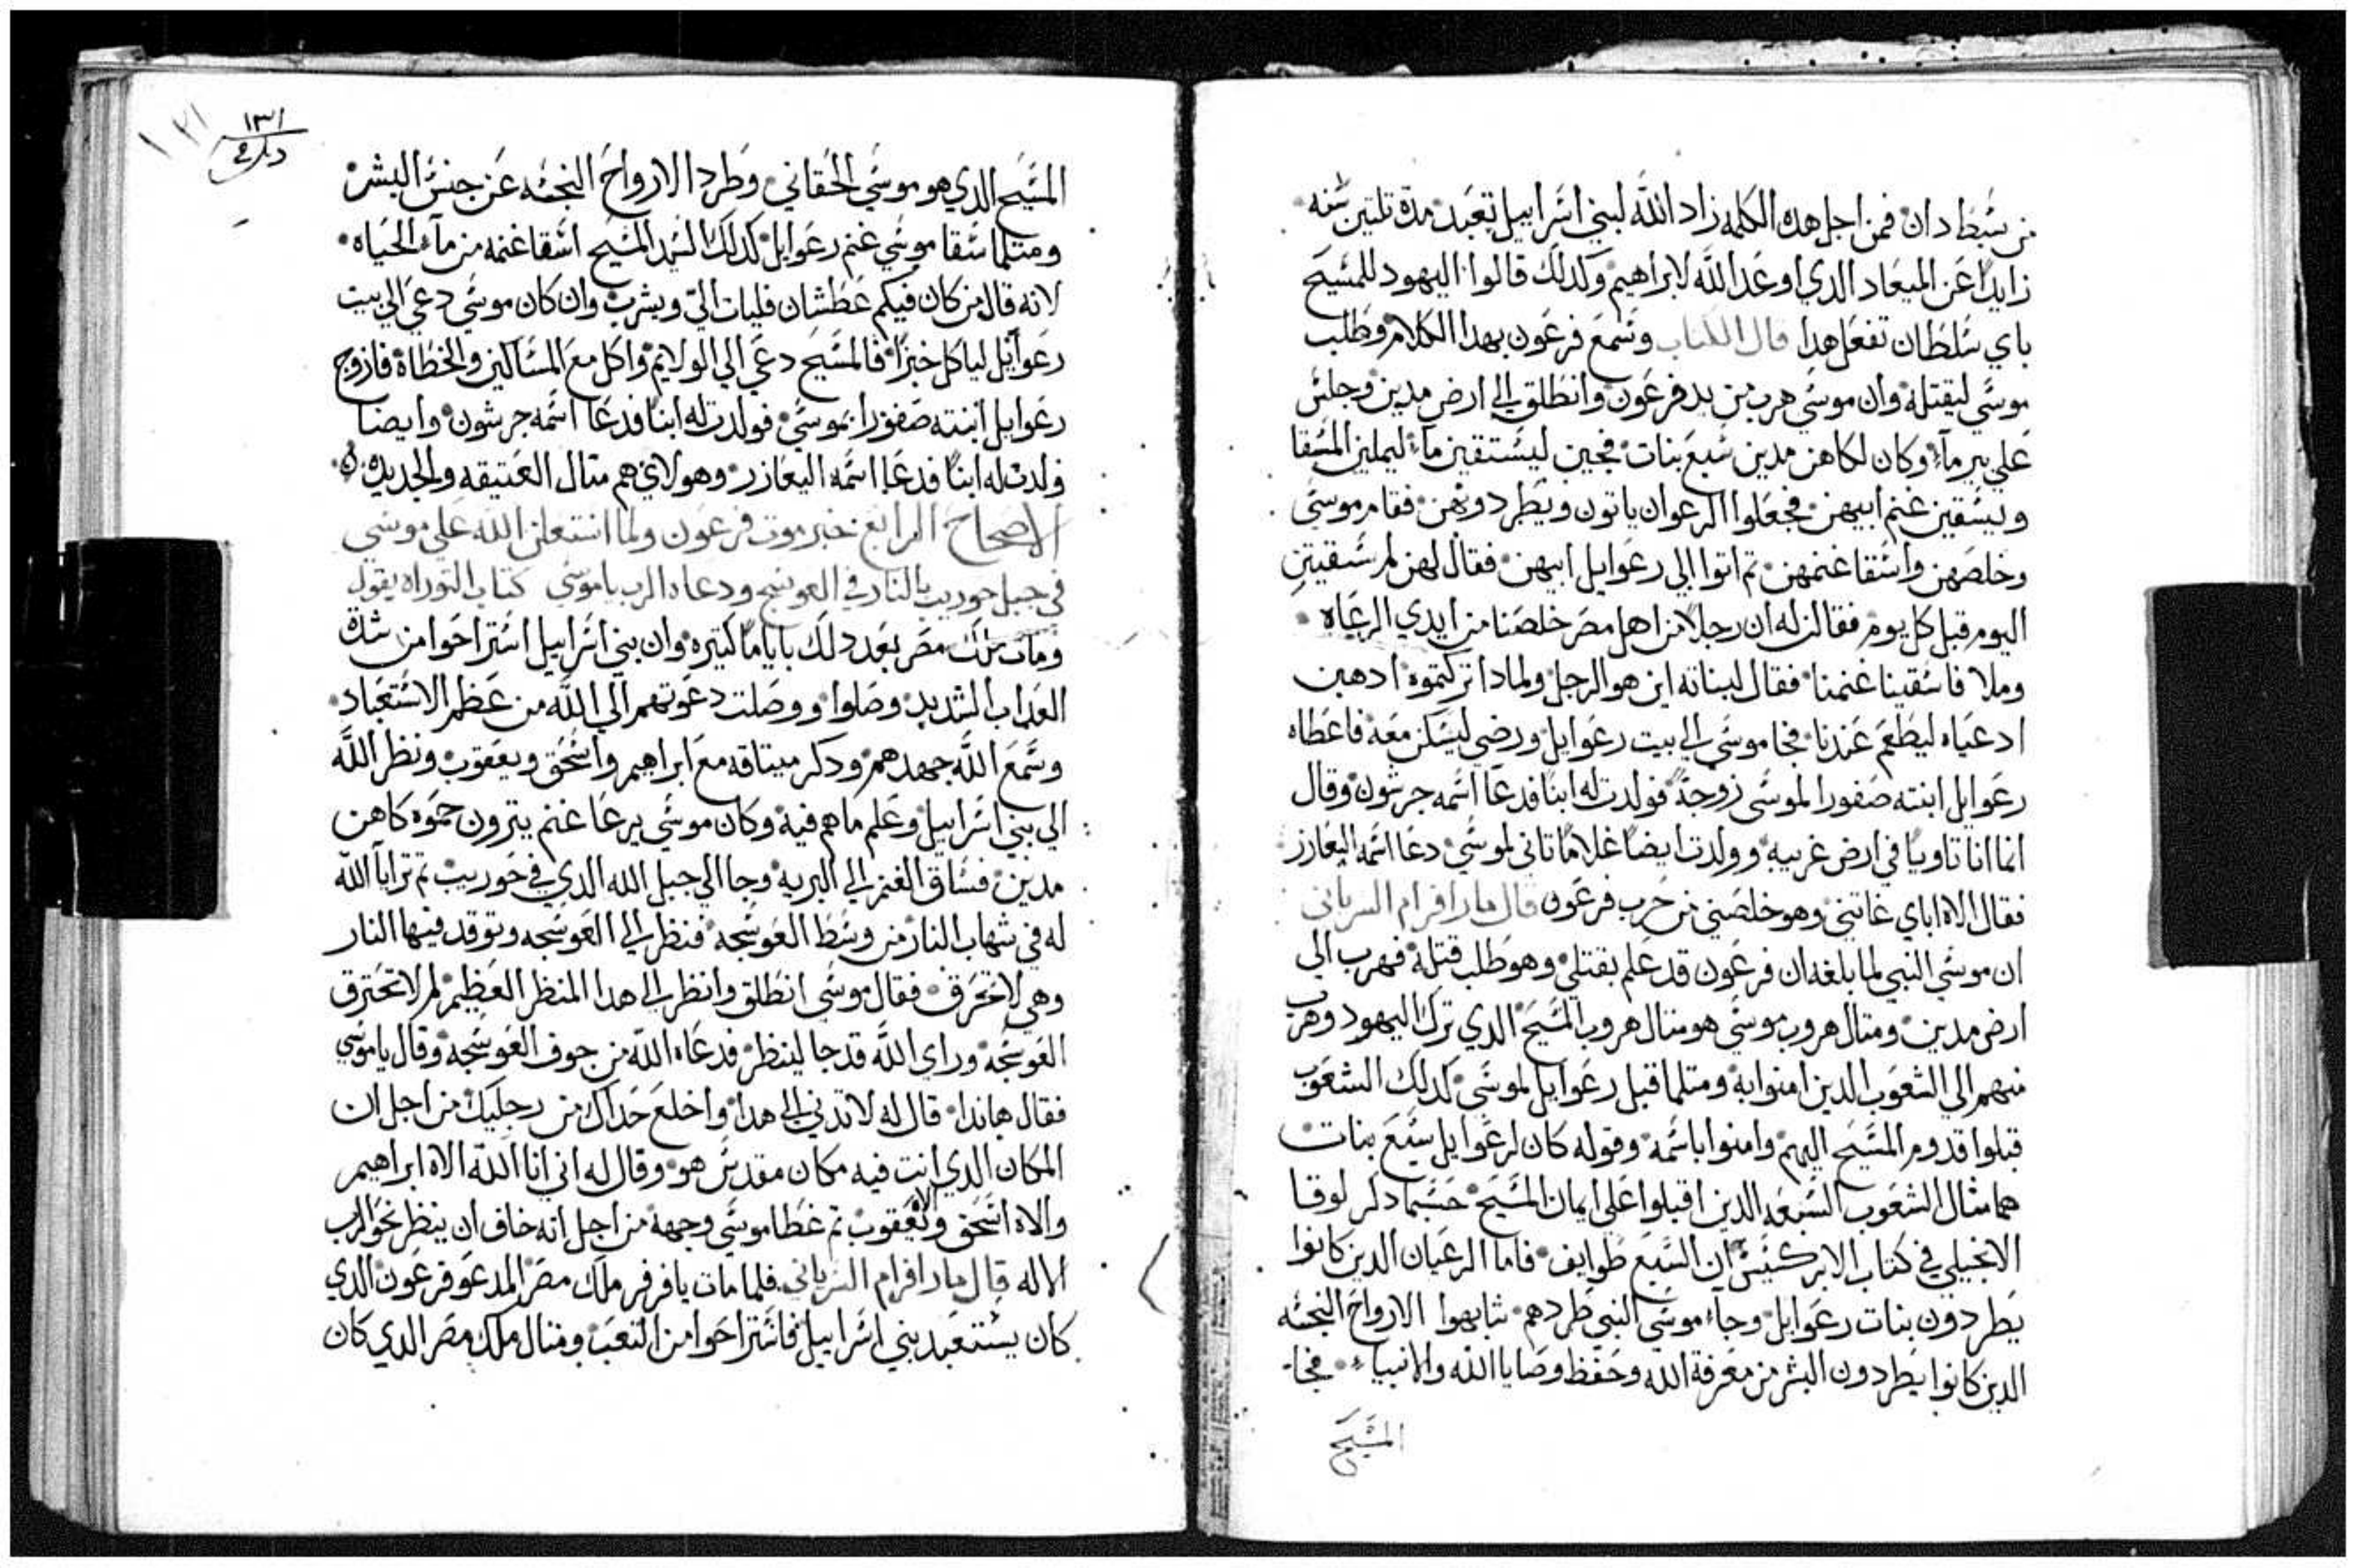 من سبط دان فمن اجل هده الكلمه زاد الله لبني اسراييل تعبد مدة تلتين سنه
زايداً عن الميعاد الدي اوعد الله لابراهيم وكدلك قالوا اليهود للمسيح
باي سلطان تفعل هدا قال الكتاب وسمع فرعون بهدا الكلام وطلب
موسي ليقتله وان موسي هرب من يد فرعون وانطلق الي ارض مدين وجلس
علي بير مآء وكان لكاهن مدين سبع بنات فجين ليستقين مآء ليملين المسقا
ويسقين غنم ابيهن فجعلوا الرعوان ياتون ويطردونهن فقام موسي
وخلصهن واسقا غنمهن تم اتوا الي رعوايل ابيهن فقال لهن لم سقيتن
اليوم قبل كل يوم فقالن له ان رجلاً من اهل مصر خلصنا من ايدي الرعاه
وملا فاسقينا غنمنا فقال لبناته اين هو الرجل ولمادا تركتموه ادهبن
ادعياه ليطعم عندنا فجا موسي الي بيت رعوايل ورضي ليسكن معه فاعطاه
رعوايل ابنته صفورا لموسي زوجةً فولدت له ابناً فدعا اسمه جرشون وقال
انما انا تاوياً في ارض غريبه وولدت ايضاً غلاماً تاني لموسي دعا اسمه اليعازر
فقال الاه اباي غاتني وهو خلصني من حرب فرعون قال مار افرام السرياني
ان موسي النبي لما بلغه ان فرعون قد علم بقتلي وهو طلب قتله فهرب الي
ارض مدين ومتال هروب موسي هو متال هروب المسيح الدي ترك اليهود وهرب
منهم الي الشعوب الدين امنوا به ومتلما قبل رعوايل لموسي كدلك الشعوب
قبلوا قدوم المسيح اليهم وامنوا باسمه وقوله كان لرعوايل سبع بنات
هما متال الشعوب السبعه الدين اقبلوا علي ايمان المسيح حسبما دكر لوقا
الانجيلي في كتاب الابركسيس ان السبع طوايف فاما الرعيان الدين كانوا
يطردون بنات رعوايل وجاء موسي النبي طردهم شابهوا الارواح النجسه
الدين كانوا يطردون البشر من معرفة الله وحفظ وصايا الله والانبياء فجا
المسيح
١٣١
١٣١
المسيح الدي هو موسي الحقاني وطرد الارواح النجسه عن جنس البشر
ومتلما سقا موسي غنم رعوايل كدلك السيد المسيح اسقا غنمه من مآء الحياه
لانه قال من كان فيكم عطشان فليات الي ويشرب وان كان موسي دعي الي بيت
رعوآيل لياكل خبزاً فالمسيح دعي الي الولايم واكل مع المساكين والخطاة فازوج
رعوايل ابنته صفورا بموسي فولدت له ابناً فدعا اسمه جرشون وايضاً
ولدت له ابناً فدعا اسمه اليعازر وهولاي هم متال العتيقه والجديده
الاصحاح الرابع خبر موت فرعون ولما استعلن الله علي موسي
في جبل حوريب بالنار في العوسج ودعاه الرب يا موسي كتاب التوراه يقول
ومات ملك مصر بعد دلك باياماً كتيره وان بني اسراييل استراحوا من شدة
العداب الشديد وصلوا ووصلت دعوتهم الي الله من عظم الاستعباد
وسمع الله جهدهم ودكر ميتاقه مع ابراهيم واسحق ويعقوب ونظر الله
الي بني اسراييل وعلم ما هم فيه وكان موسي يرعا غنم يترون حموه كاهن
مدين فساق الغنم الي البريه وجا الي جبل الله الدي في حوريب تم ترايآ الله
له في شهاب النار من وسط العوسجه فنظر الي العوسجه وتوقد فيها النار
وهي لا تحترق فقال موسي انطلق وانظر الي هدا المنظر العظيم لم لا تحترق
العوسجه وراي الله قد جا لينظر فدعاه الله من جوف العوسجه وقال يا موسي
فقال هاندا قال له لا تدني الي هدا واخلع حداك من رجليك من اجل ان
المكان الدي انت فيه مكان مقدس هو وقال له اني انا الله الاه ابراهيم
والاه اسحق والاه يعقوب تم غطا موسي وجهه من اجل انه خاف ان ينظر نحو الرب
الاله قال مار افرام السرياني فلما مات يافرفر ملك مصر المدعو فرعون الدي
كان يستعبد بني اسراييل فاستراحوا من التعب ومتال ملك مصر الدي كان